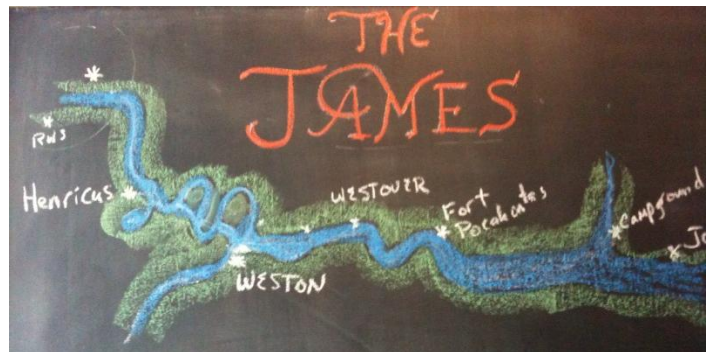 THE
JAMES
RWS
Henricus
WESTOVER
Fort
Pocahontas
Campground
WESTON